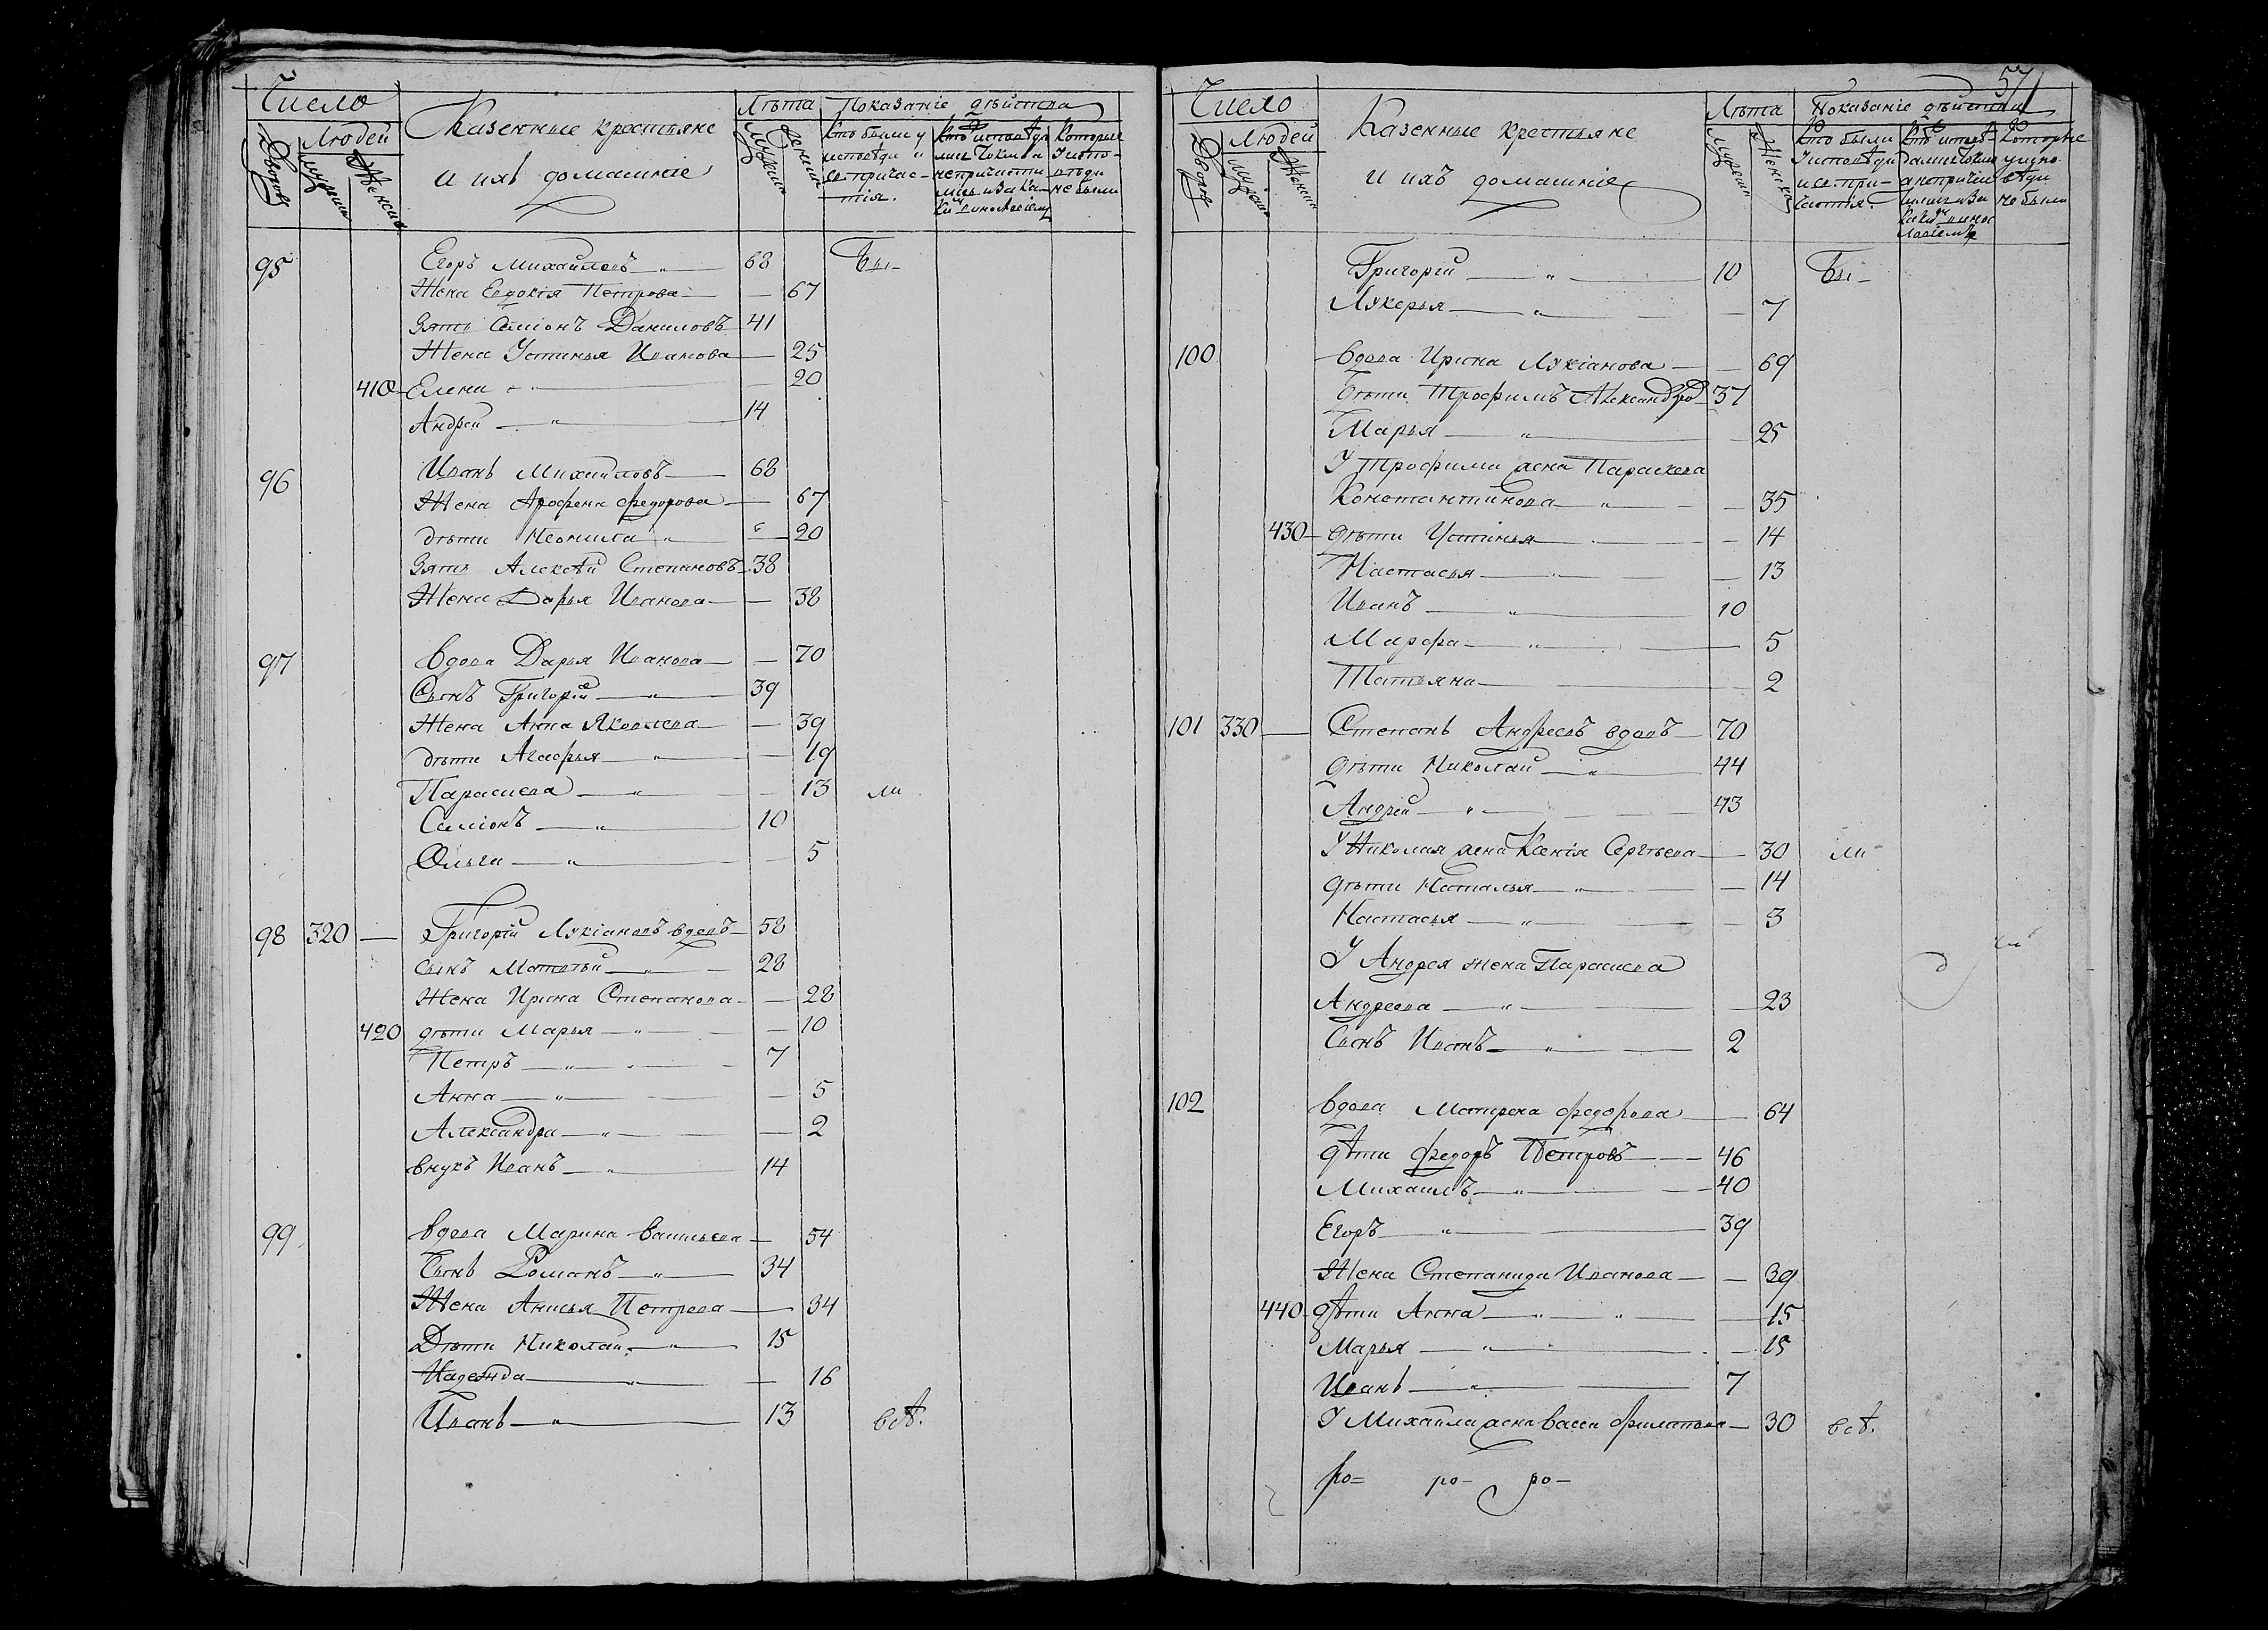 Число
Людей
Дворовъ
Мужеска
Женска
Казенные крестьяне
и ихъ домашніе
Лѣта
Мужеска
Женска
Показаніе дѣйства
Кто были у
исповѣди и
св. причас-
тія.
Которые
у испо-
вѣди
не были
95 Егоръ Михайловъ — „ — 68 Бы-
Жена Евдокія Петрова — 67
Зять Семіонъ Даниловъ 41
Жена Устинья Иванова — 25
410 Елена — 20
Андрей — „ — 14
96 Иванъ Михайловъ — 68
Жена Агрофена Федорова — 67
дѣти Неонила „ — 20
Зять Алексѣй Степановъ 38
Жена Дарья Иванова — 38
97 Вдова Дарья Иванова — 70
Сынъ Григорій — „ — 39
Жена Анна Яковлева — 39
дѣти Агафья — „ — 19
Парасцева — „ — 13 ли
Семіонъ — „ — 10
Ольга — „ — 5
98 320 — Григорій Лукіановъ вдовъ 58
сынъ Матвѣй — „ — 28
Жена Ирина Степанова — 28
420 дѣти Марья — „ — 10
Петръ — „ — 7
Анна — „ — 5
Александра — „ — 2
внукъ Иванъ — „ — 14
99 Вдова Марина Васильева — 54
Сынъ Романъ — „ — 34
Жена Анисья Петрова — 34
Дѣти Николай — „ — 15
Надежда — „ — 16
Иванъ — „ — 13 всѣ.
57
Число
Людей
Дворовъ
Мужеска
Женска
Казенные крестьяне
и ихъ домашніе
Лѣта
Мужеска
Женска
Показаніе дѣйства
Кто были
у исповѣди
и св. при-
частія.
Которые
у испо-
вѣди
не были
Григорій — „ — 10 Бы-
Лукерья — „ — 7
100 Вдова Ирина Лукіанова — 69
дѣти Трофимъ Александров 37
Марья — „ — 25
У Трофима жена Параскева
Константинова — „ — 35
430 — дѣти Устинья — 14
Настасья — „ — 13
Иванъ — „ — 10
Марфа — „ — 5
Татьяна — 2
101 330 — Степанъ Андреевъ вдовъ — 70
дѣти Николай — „ — 44
Андрей — „ — 43
У Николая жена Ксенія Сергѣева — 30 ли
дѣти Наталья — „ — 14
Настасья — „ — 3
У Андрея жена Парасцева
Андреева — „ — 23
Сынъ Иванъ — „ — 2
102 Вдова Матрена Федорова — 64
дѣти Федоръ Петровъ — 46
Михаилъ — „ — 40
Егоръ — „ — 39
Жена Степанида Иванова — 39
440 дѣти Анна — „ — 15
Марья — „ — 15
Иванъ — „ — 7
У Михайла жена Васса Филипова — 30 всѣ.
ро= ро- ро-